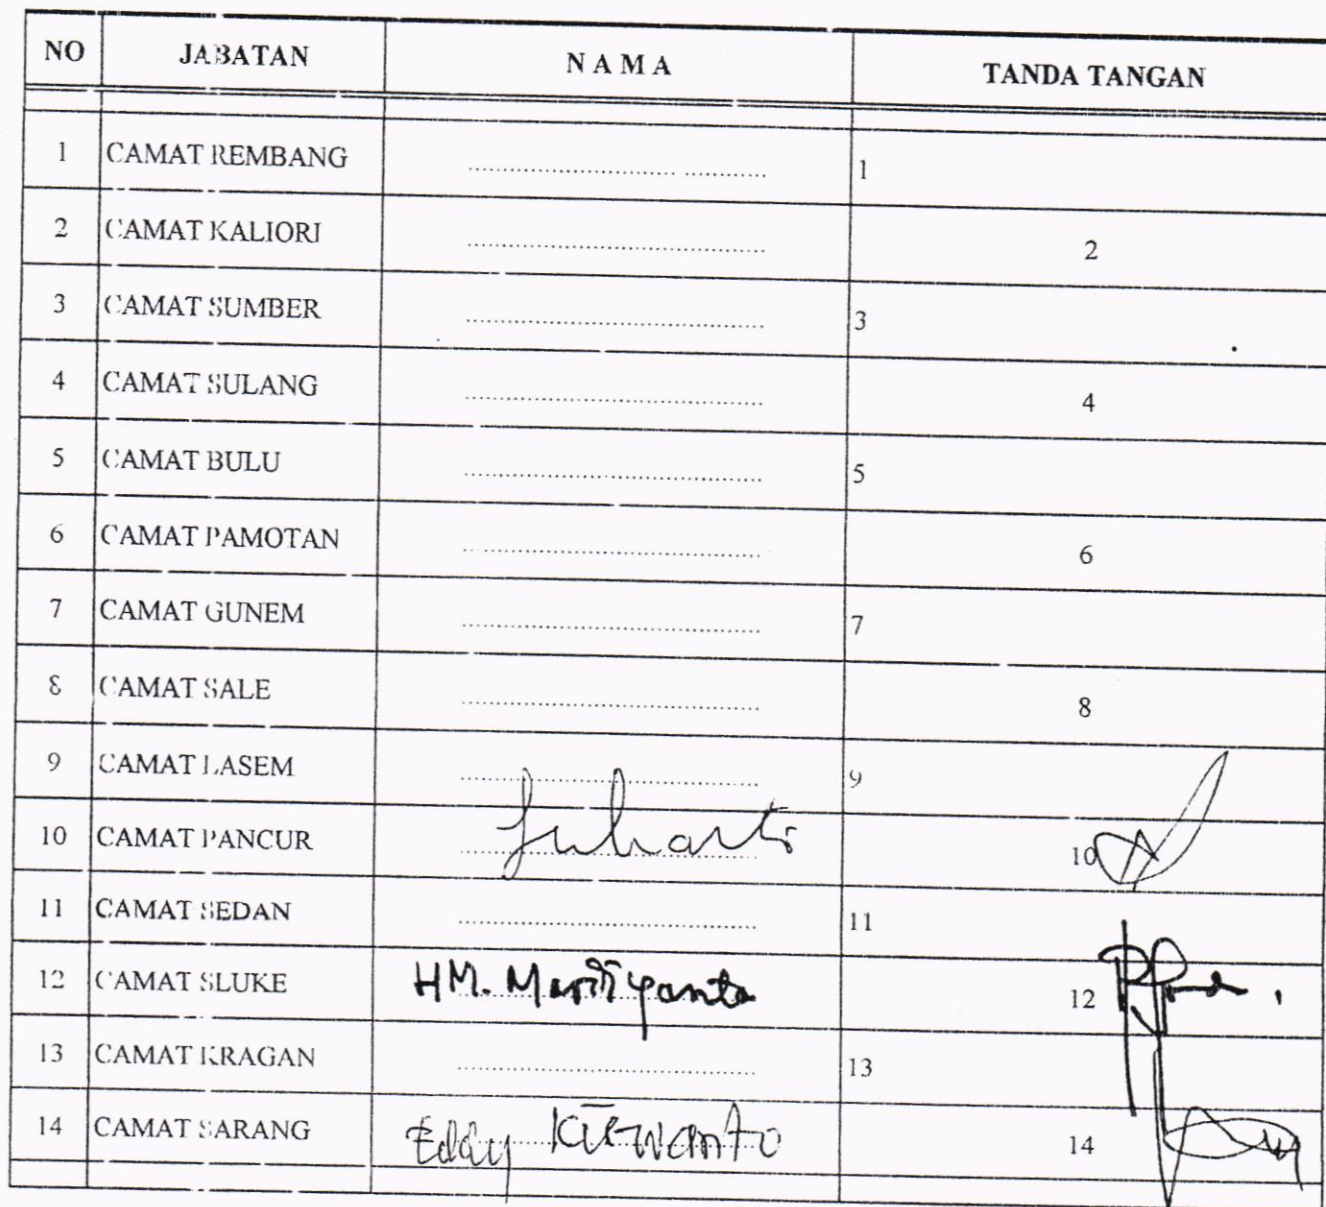 NO JABATAN N A M A TANDA TANGAN
1 CAMAT REMBANG .............................. 1
2 CAMAT KALIORI .............................. 2
3 CAMAT SUMBER .............................. 3
4 CAMAT SULANG .............................. 4
5 CAMAT BULU .............................. 5
6 CAMAT PAMOTAN .............................. 6
7 CAMAT GUNEM .............................. 7
8 CAMAT SALE .............................. 8
9 CAMAT LASEM .............................. 9
10 CAMAT PANCUR Suharto 10
11 CAMAT SEDAN .............................. 11
12 CAMAT SLUKE HM. Mardiyanto 12
13 CAMAT KRAGAN .............................. 13
14 CAMAT SARANG Eddy 14